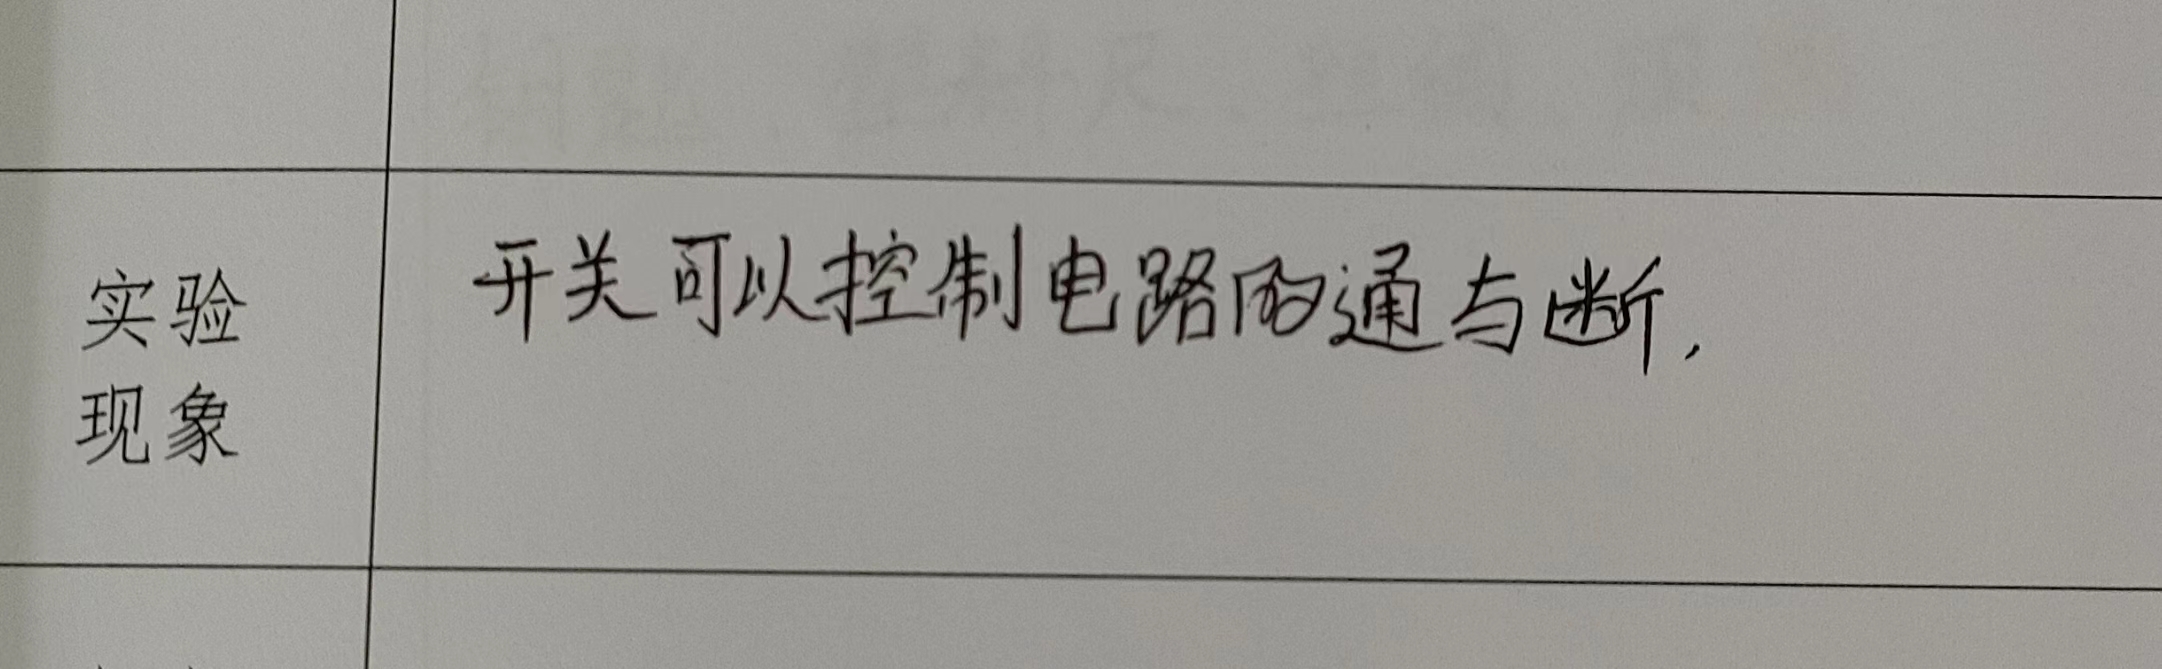 实验
现象
开关可以控制电路的通与断.